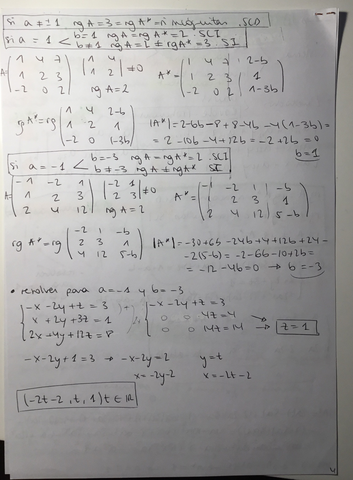 Si a ≠ ±1 rg A = 3 = rg A* = nº incógnitas. SCD
Si a = 1 < b=1 rg A = rg A* = 2. SCI
b≠1 rg A = 2 ≠ rg A* = 3. SI
A = ( 1 4 7 | 1 2 3 | -2 0 2 ) | 1 4 | 1 2 | ≠0 rg A = 2 A* = ( 1 4 7 | 2-b | 1 2 3 | 1 | -2 0 2 | 1-3b )
rg A* = rg ( 1 4 2-b | 1 2 1 | -2 0 1-3b ) |A*| = 2-6b-8+8-4b-4(1-3b) =
= 2-10b-4+12b = -2+2b = 0
b = 1
Si a = -1 < b=-3 rg A = rg A* = 2. SCI
b≠-3 rg A ≠ rg A* SI
A = ( -1 -2 1 | 1 2 3 | 2 4 12 ) | -2 1 | 2 3 | ≠0 rg A = 2 A* = ( -1 -2 1 | -b | 1 2 3 | 1 | 2 4 12 | 5-b )
rg A* = rg ( -2 1 -b | 2 3 1 | 4 12 5-b ) |A*| = -30+6b-24b+4+12b+24-
-2(5-b) = -2-6b-10+2b =
= -12-4b = 0 → b = -3
• resolver para a = -1 y b = -3
-x-2y+z = 3 -x-2y+z = 3
x+2y+3z = 1 0 0 4z = 4
2x+4y+12z = 8 0 0 14z = 14 → z = 1
-x-2y+1 = 3 → -x-2y = 2 y = t
x = -2y-2 x = -2t-2
(-2t-2, t, 1) t ∈ ℝ